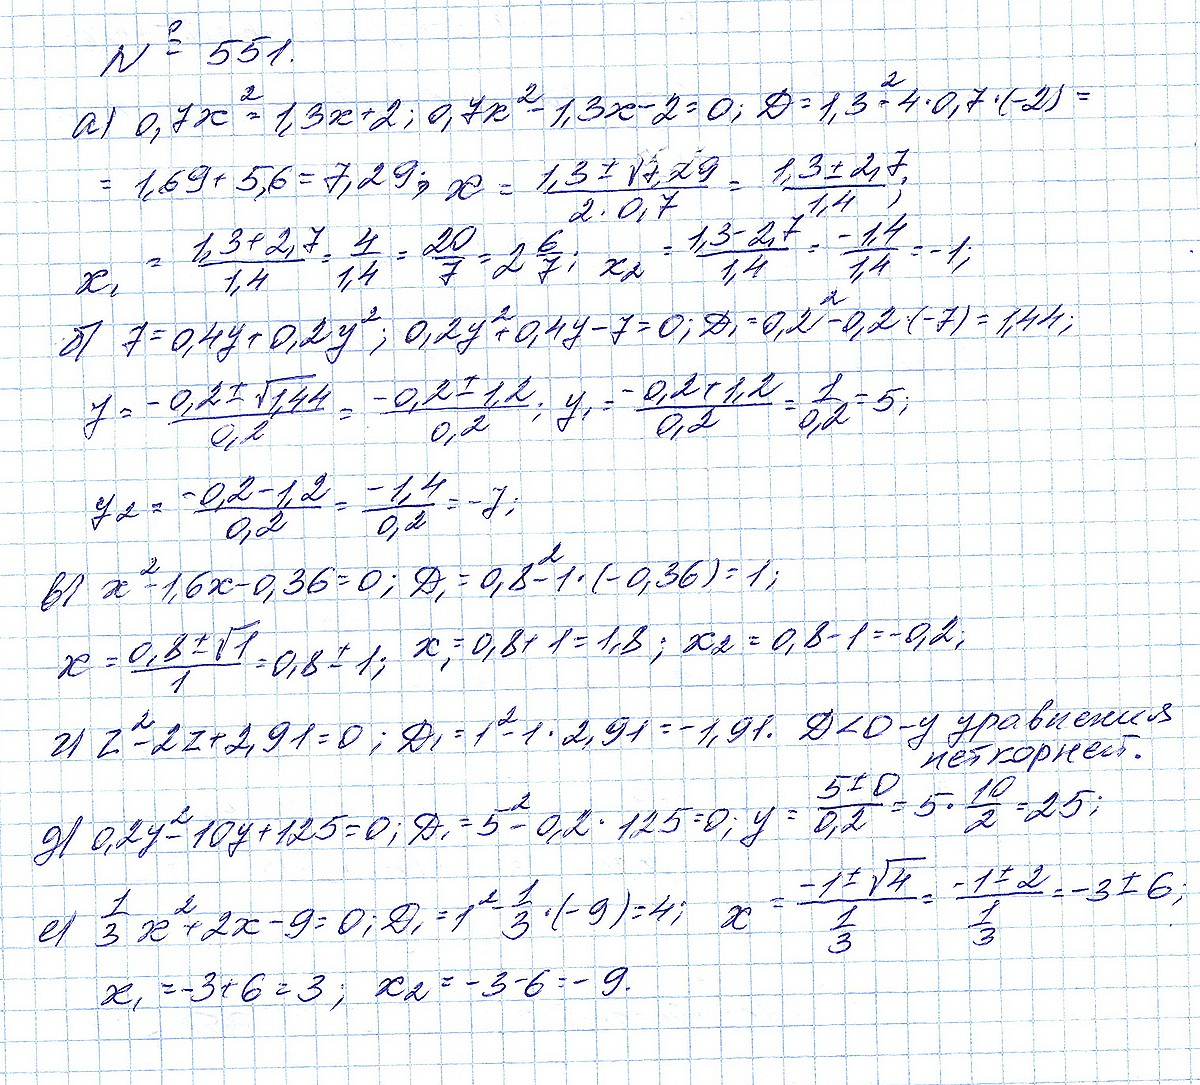 № 551.
а) 0,7x² = 1,3x+2; 0,7x² - 1,3x - 2 = 0; Д = 1,3² - 4·0,7·(-2) =
= 1,69 + 5,6 = 7,29; x = (1,3 ± √7,29)/(2·0,7) = (1,3 ± 2,7)/1,4;
x₁ = (1,3+2,7)/1,4 = 4/1,4 = 20/7 = 2 6/7; x₂ = (1,3-2,7)/1,4 = -1,4/1,4 = -1;
б) 7 = 0,4y + 0,2y²; 0,2y² + 0,4y - 7 = 0; Д₁ = 0,2² - 0,2·(-7) = 1,44;
y = (-0,2 ± √1,44)/0,2 = (-0,2 ± 1,2)/0,2; y₁ = (-0,2+1,2)/0,2 = 1/0,2 = 5;
y₂ = (-0,2-1,2)/0,2 = -1,4/0,2 = -7;
в) x² - 1,6x - 0,36 = 0; Д₁ = 0,8² - 1·(-0,36) = 1;
x = (0,8 ± √1)/1 = 0,8 ± 1; x₁ = 0,8 + 1 = 1,8; x₂ = 0,8 - 1 = -0,2;
г) z² - 2z + 2,91 = 0; Д₁ = 1² - 1·2,91 = -1,91. Д<0 - у уравнения
нет корней.
д) 0,2y² - 10y + 125 = 0; Д₁ = 5² - 0,2·125 = 0; y = (5±0)/0,2 = 5·10/2 = 25;
е) 1/3 x² + 2x - 9 = 0; Д₁ = 1² - 1/3·(-9) = 4; x = (-1 ± √4)/(1/3) = (-1 ± 2)/(1/3) = -3 ± 6;
x₁ = -3 + 6 = 3; x₂ = -3 - 6 = -9.